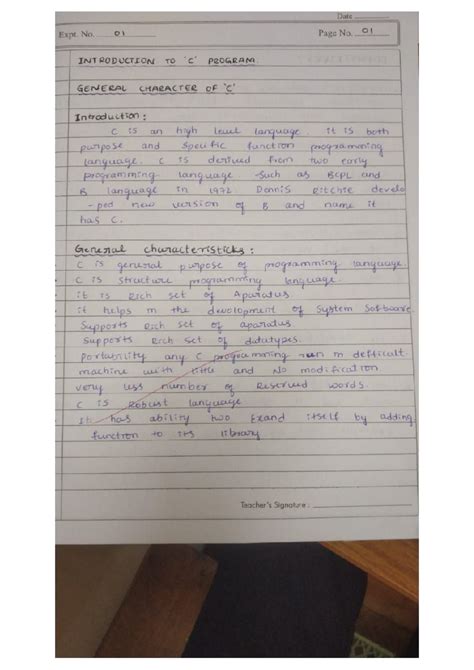 Date
Expt. No. 01
Page No. 01
INTRODUCTION TO 'C' PROGRAM
GENERAL CHARACTER OF 'C'
Introduction:
C is an high level language. it is both
purpose and specific function programming
language. C is derived from two early
programming language such as BCPL and
B language in 1972. Dennis Ritchie develo
-ped new version of B and name it
has C.
General characteristicks:
C is general purpose of programming language
C is structure programming language.
it is Rich set of Aparatus.
it helps in the development of System Software.
Supports Rich set of aparatus
Supports Rich set of datatypes.
Portability any C programming run in defficult
machine with little and No modification
very less number of Reserved words.
C is Robust language
It has ability two Exand itself by adding
function to its library
Teacher's Signature :